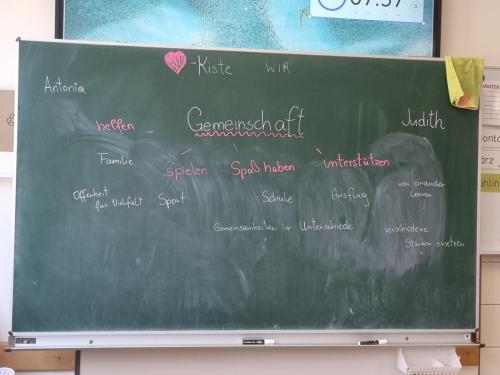 -Kiste WIR
Antonia
helfen
Gemeinschaft
Judith
Familie
spielen
Spaß haben
unterstützen
Offenheit
für Vielfalt
Sport
Schule
Ausflug
von einander
lernen
Gemeinsamkeiten + Unterschiede
verschiedene
Stärken einsetzen